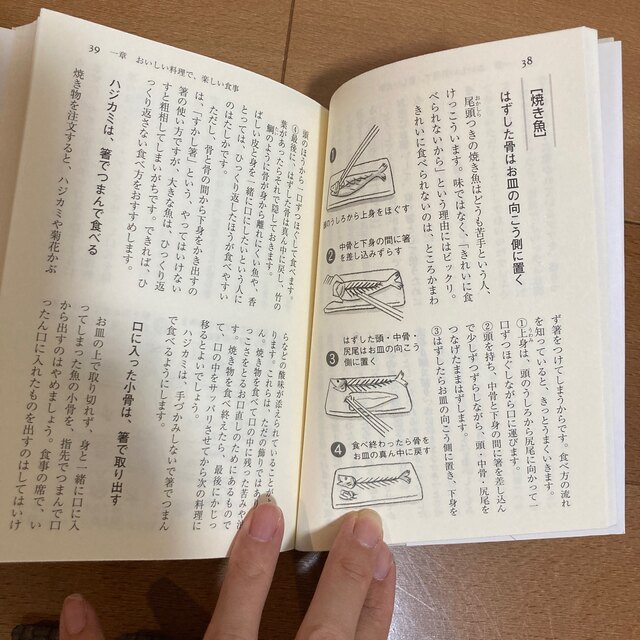 38
［焼き魚］
はずした骨はお皿の向こう側に置く
尾頭つきの焼き魚はどうも苦手という人、
おかしら
けっこういます。味ではなく、「きれいに食
べられないから」という理由にはビックリ。
きれいに食べられないのは、ところかまわ
1
のうしろから上身をほぐす
2
中骨と下身の間に箸
を差し込みずらす
3
はずした頭・中骨・
尻尾はお皿の向こう
側に置く
4
食べ終わったら骨を
お皿の真ん中に戻す
ず箸をつけてしまうからです。食べ方の流れ
を知っていると、きっとうまくいきます。
①上身は、頭のうしろから尻尾に向かって一
口ずつほぐしながら口に運びます。
②頭を持ち、中骨と下身の間に箸を差し込ん
で少しずつずらしながら、頭・中骨・尻尾を
つなげたままはずします。
③はずしたらお皿の向こう側に置き、下身を
39 一章 おいしい料理で、楽しい食事
頭のほうから一口ずつほぐして食べます。
④最後に、はずした骨は真ん中に戻し、竹の
葉があったらそれで隠しておきます。
鯛のように骨から身が離れにくい魚や、香
ばしい皮と身を一緒に口にしたいという人に
とっては、ひっくり返したほうが食べやすい
のはたしかです。
ただし、骨と骨の間から下身をかき出すの
は、「すかし箸」という、やってはいけない
箸の使い方ですが、大きな魚は、ひっくり返
すと粗相してしまいがちです。できれば、ひ
っくり返さない食べ方をおすすめします。
ハジカミは、箸でつまんで食べる
焼き物を注文すると、ハジカミや菊花かぶ
らなどの酸味が添えられていること
ります。これらは、ただの飾りではあり
ん。焼き物を食べて口の中に残った苦みや
っこさをとるお口直しのためにあるもので
す。焼き物を食べ終えたら、最後にかじっ
て、口の中をサッパリさせてから次の料理に
移るとよいでしょう。
ハジカミは、手づかみしないで箸でつまん
で食べるようにします。
口に入った小骨は、箸で取り出す
お皿の上で取り切れず、身と一緒に口に入
ってしまった魚の小骨を、指先でつまんで口
から出すのはやめましょう。食事の席で、い
ったん口に入れたものを出すのはしてはいけ